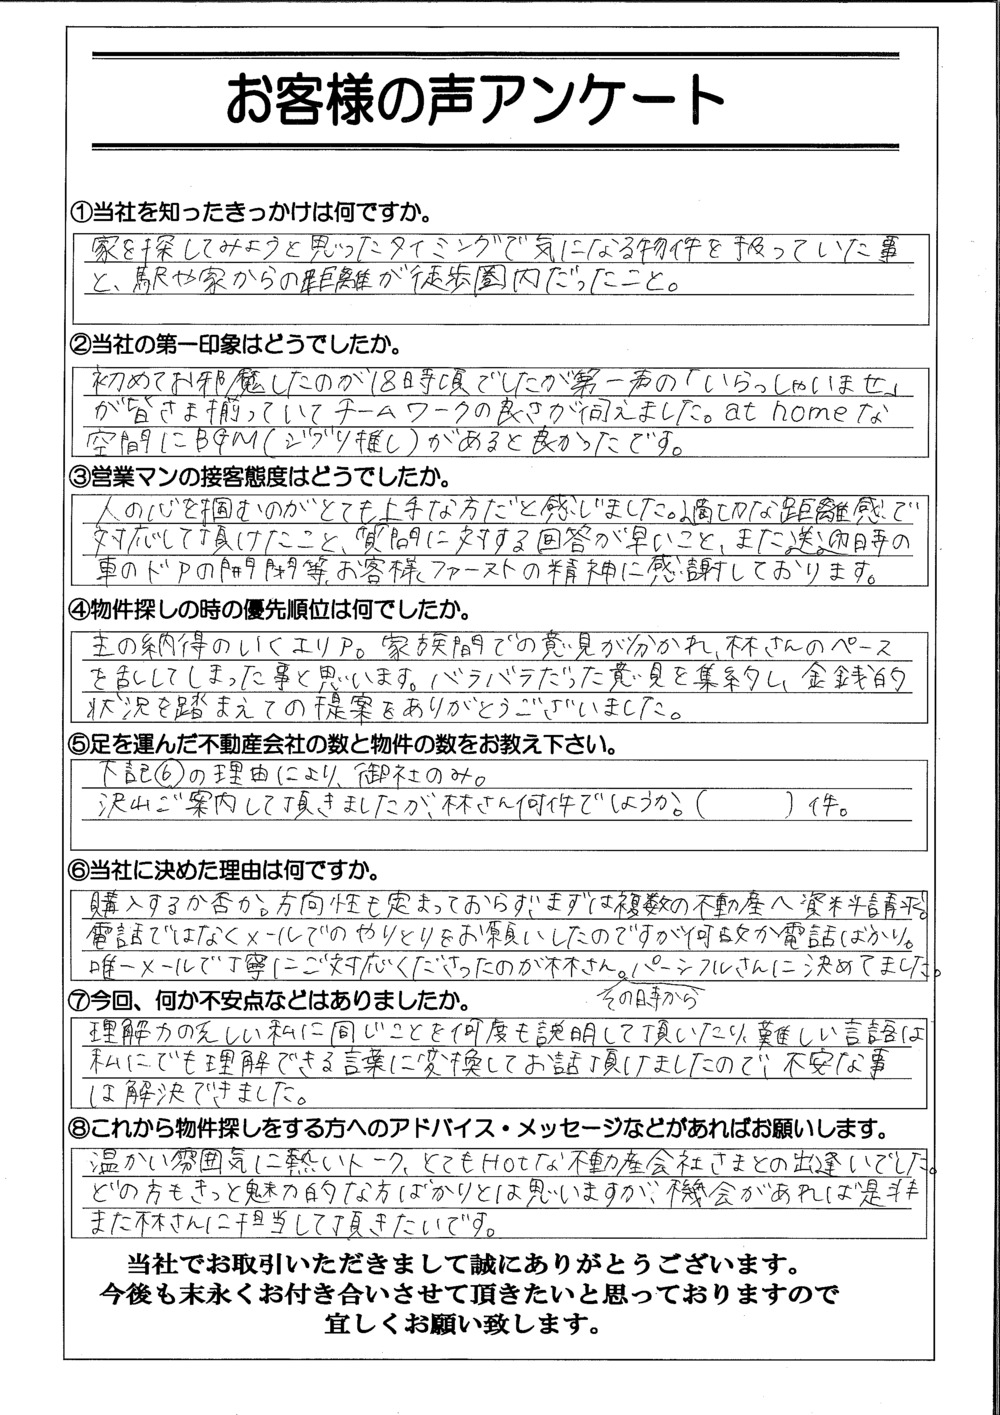 お客様の声アンケート
①当社を知ったきっかけは何ですか。
家を探してみようと思ったタイミングで気になる物件を扱っていた事
と、駅や家からの距離が徒歩圏内だったこと。
②当社の第一印象はどうでしたか。
初めてお邪魔したのが18時頃でしたが第一声の「いらっしゃいませ」
が皆さま揃っていてチームワークの良さが伺えました。at homeな
空間にBGM(ジブリ推し)があると良かったです。
③営業マンの接客態度はどうでしたか。
人の心を掴むのがとても上手な方だと感じました。適切な距離感で
対応して頂けたこと、質問に対する回答が早いこと、また送迎時の
車のドアの開閉等、お客様ファーストの精神に感謝しております。
④物件探しの時の優先順位は何でしたか。
主の納得のいくエリア。家族間での意見が分かれ、林さんのペース
を乱してしまった事と思います。バラバラだった意見を集約し、金銭的
状況を踏まえての提案をありがとうございました。
⑤足を運んだ不動産会社の数と物件の数をお教え下さい。
下記⑥の理由により、御社のみ。
沢山ご案内して頂きましたが、林さん何件でしょうか。( )件。
⑥当社に決めた理由は何ですか。
購入するか否か。方向性も定まっておらず、まずは複数の不動産へ資料請求。
電話ではなくメールでのやりとりをお願いしたのですが何故か電話ばかり。
唯一メールで丁寧にご対応くださったのが林さん。パーシフルさんに決めてました。
その時から
⑦今回、何か不安点などはありましたか。
理解力の乏しい私に同じことを何度も説明して頂いたり、難しい言語は
私にでも理解できる言葉に変換してお話頂けましたので、不安な事
は解決できました。
⑧これから物件探しをする方へのアドバイス・メッセージなどがあればお願いします。
温かい雰囲気に熱いトーク、とてもHotな不動産会社さまとの出逢いでした。
どの方もきっと魅力的な方ばかりとは思いますが、機会があれば是非
また林さんに担当して頂きたいです。
当社でお取引いただきまして誠にありがとうございます。
今後も末永くお付き合いさせて頂きたいと思っておりますので
宜しくお願い致します。